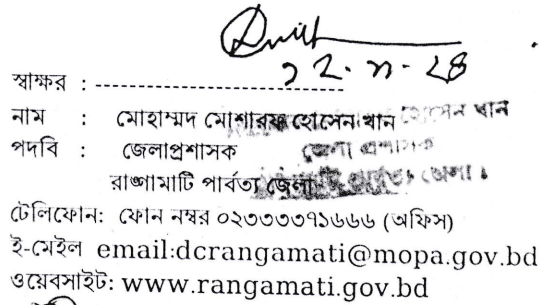 ১২-২-২৪
স্বাক্ষর :
নাম : মোহাম্মদ মোশারফ হোসেন খান হোসেন খান
পদবি : জেলাপ্রশাসক জেলা প্রশাসক
রাঙ্গামাটি পার্বত্য জেলা জেলা।
টেলিফোন: ফোন নম্বর ০২৩৩৩৩৭১৬৬৬ (অফিস)
ই-মেইল email:dcrangamati@mopa.gov.bd
ওয়েবসাইট: www.rangamati.gov.bd